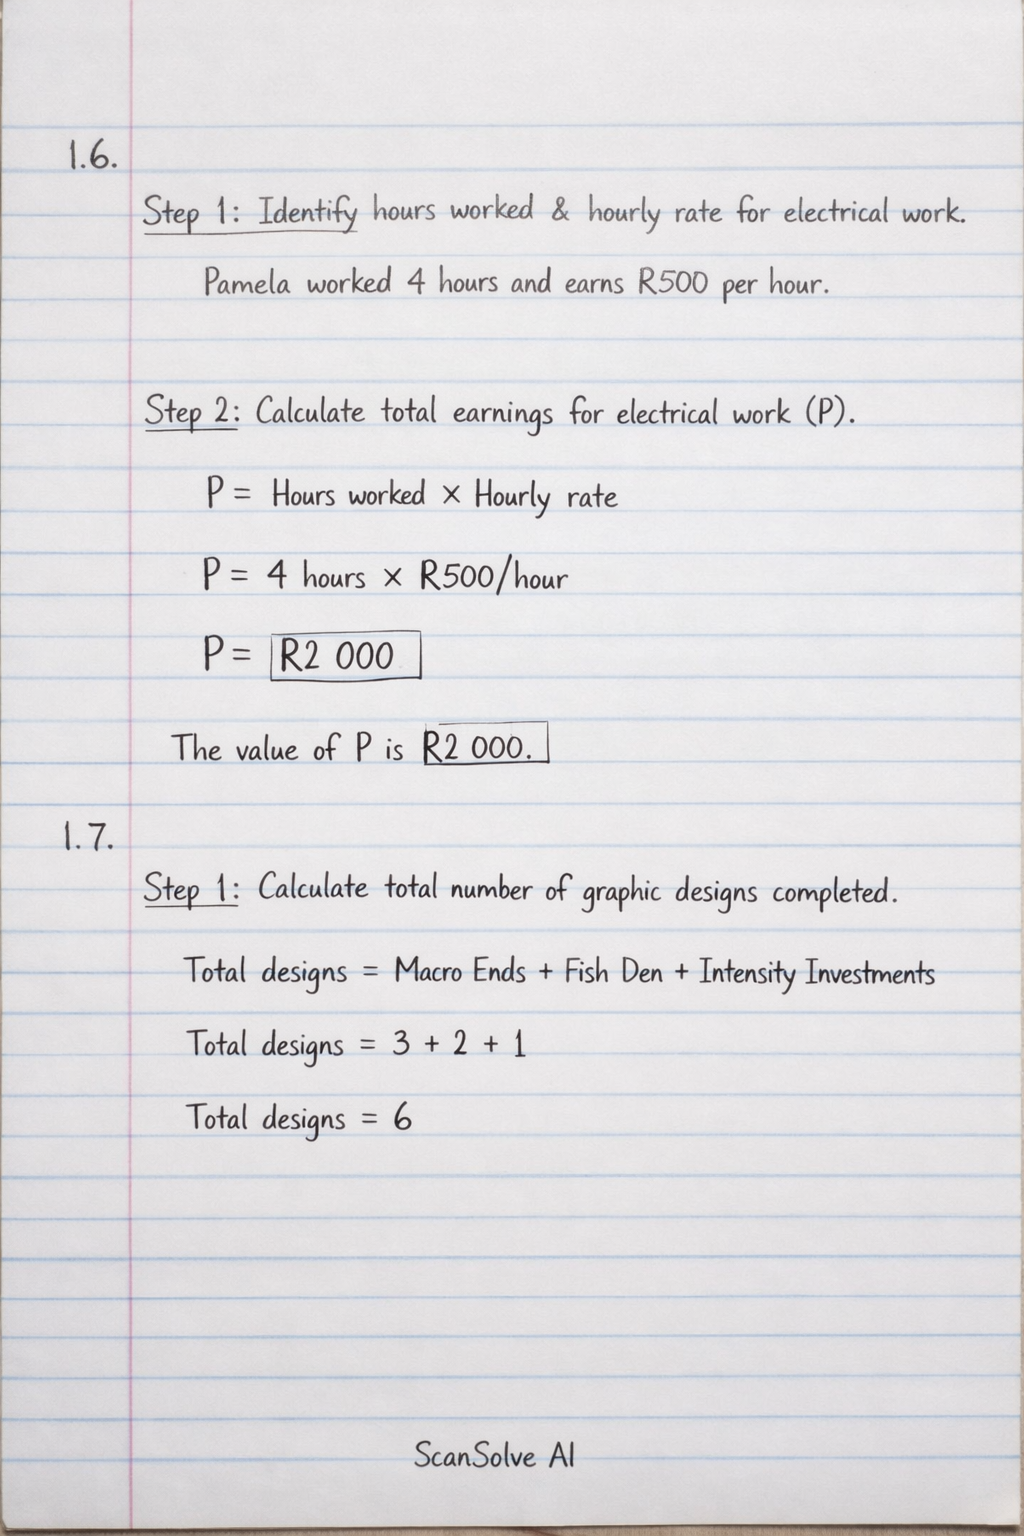 1.6.
Step 1: Identify hours worked & hourly rate for electrical work.
Pamela worked 4 hours and earns R500 per hour.
Step 2: Calculate total earnings for electrical work (P).
P = Hours worked × Hourly rate
P = 4 hours × R500/hour
P = R2 000
The value of P is R2 000.
1.7.
Step 1: Calculate total number of graphic designs completed.
Total designs = Macro Ends + Fish Den + Intensity Investments
Total designs = 3 + 2 + 1
Total designs = 6
ScanSolve AI